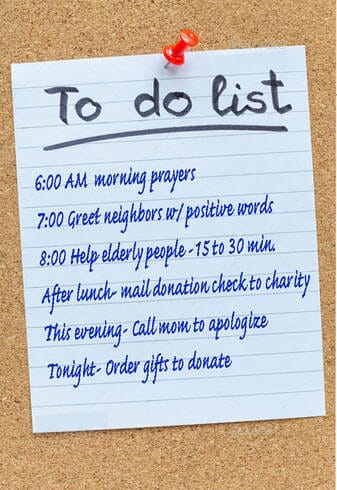 To do list
6:00 AM morning prayers
7:00 Greet neighbors w/ positive words
8:00 Help elderly people -15 to 30 min.
After lunch- mail donation check to charity
This evening- Call mom to apologize
Tonight- Order gifts to donate